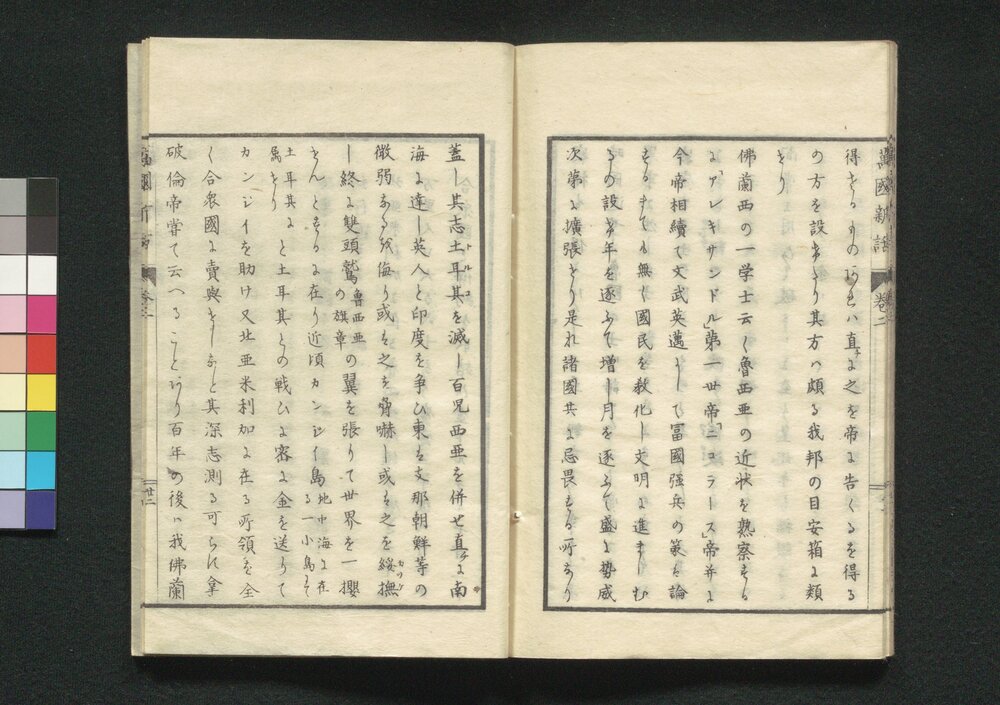 萬國新話 卷二
得せるものあらハ直チに之を帝に告くるを得る
の方を設けたり其方ハ頗る我邦の目安箱に類
せり
佛蘭西の一学士云く魯西亜の近状を熟察するに
「アレキサンドル」第一世帝「ニコラース」帝并に
今帝相續て文武英邁にして冨國強兵の策を論
するまても無く國民を教化し文明に進ましむ
るの設け年を逐ふて増し月を逐ふて盛に勢威
次第に擴張せり是れ諸國共に忌畏する所なり
蓋し其志土耳其を滅し百児西亜を併せ直チに南
海に達し英人と印度を争ひ東は支那朝鮮等の
微弱なるを侮り或は之を脅嚇し或は之を綏撫
し終に雙頭鷲魯西亜の旗章の翼を張りて世界を一攫
せんとするに在り近頃カンジイ島地中海に在る一小島にて
土耳其に属せりと土耳其との戦ひに密に金を送りて
カンジイを助け又北亜米利加に在る所領を全
く合衆國に賣與せしなと其深志測る可らす拿
破倫帝嘗て云へることあり百年の後ハ我佛蘭
廿二